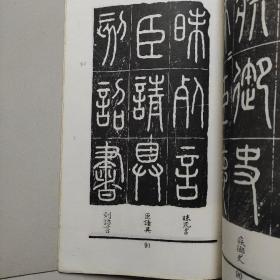 疾御史
疾御史
昧死言
臣請具
刻詔書
昧死言
臣請具
刻詔書
91